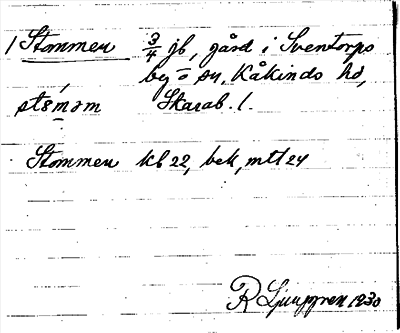 1 Stommen 3/4 jb, gård i Sventorps
by o sn, Kåkinds hd,
stöməm Skarab. l.
Stommen kb 22, bek, mtl 24
R Ljunggren 1930